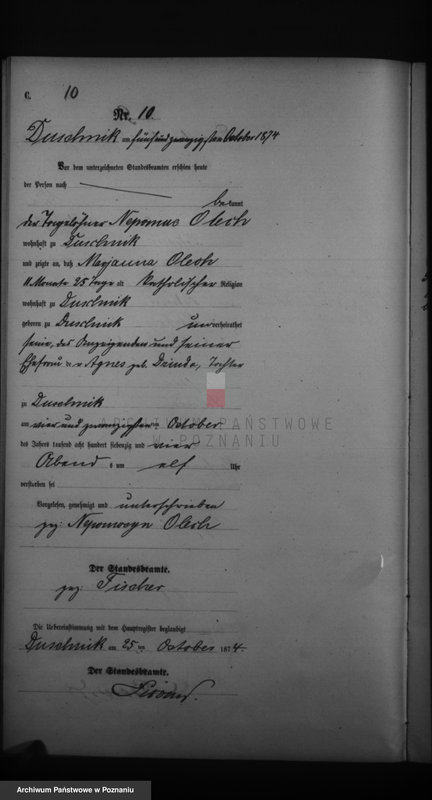 C. 10
Nr. 10
Duschnik am fünfundzwanzigsten October 1874
Vor dem unterzeichneten Standesbeamten erschien heute
der Person nach
bekannt
der Tagelöhner Nepomuc Olech
wohnhaft zu Duschnik
und zeigte an, daß Maryanna Olech
11 Monate 25 Tage alt katholischer Religion
wohnhaft zu Duschnik
geboren zu Duschnik unverheirathet
seine, des Anzeigenden und seiner
Ehefrau Agnes geb. Tochter
zu Duschnik
am vier und zwanzigsten October
des Jahres tausend acht hundert siebenzig und vier
Abend s um elf Uhr
verstorben sei
Vorgelesen, genehmigt und unterschrieben
gez: Olech
Der Standesbeamte.
gez: Fischer
Die Uebereinstimmung mit dem Hauptregister beglaubigt
Duschnik am 25 ten October 1874.
Der Standesbeamte.
ARCHIWUM PAŃSTWOWE
W POZNANIU
Archiwum Państwowe w Poznaniu